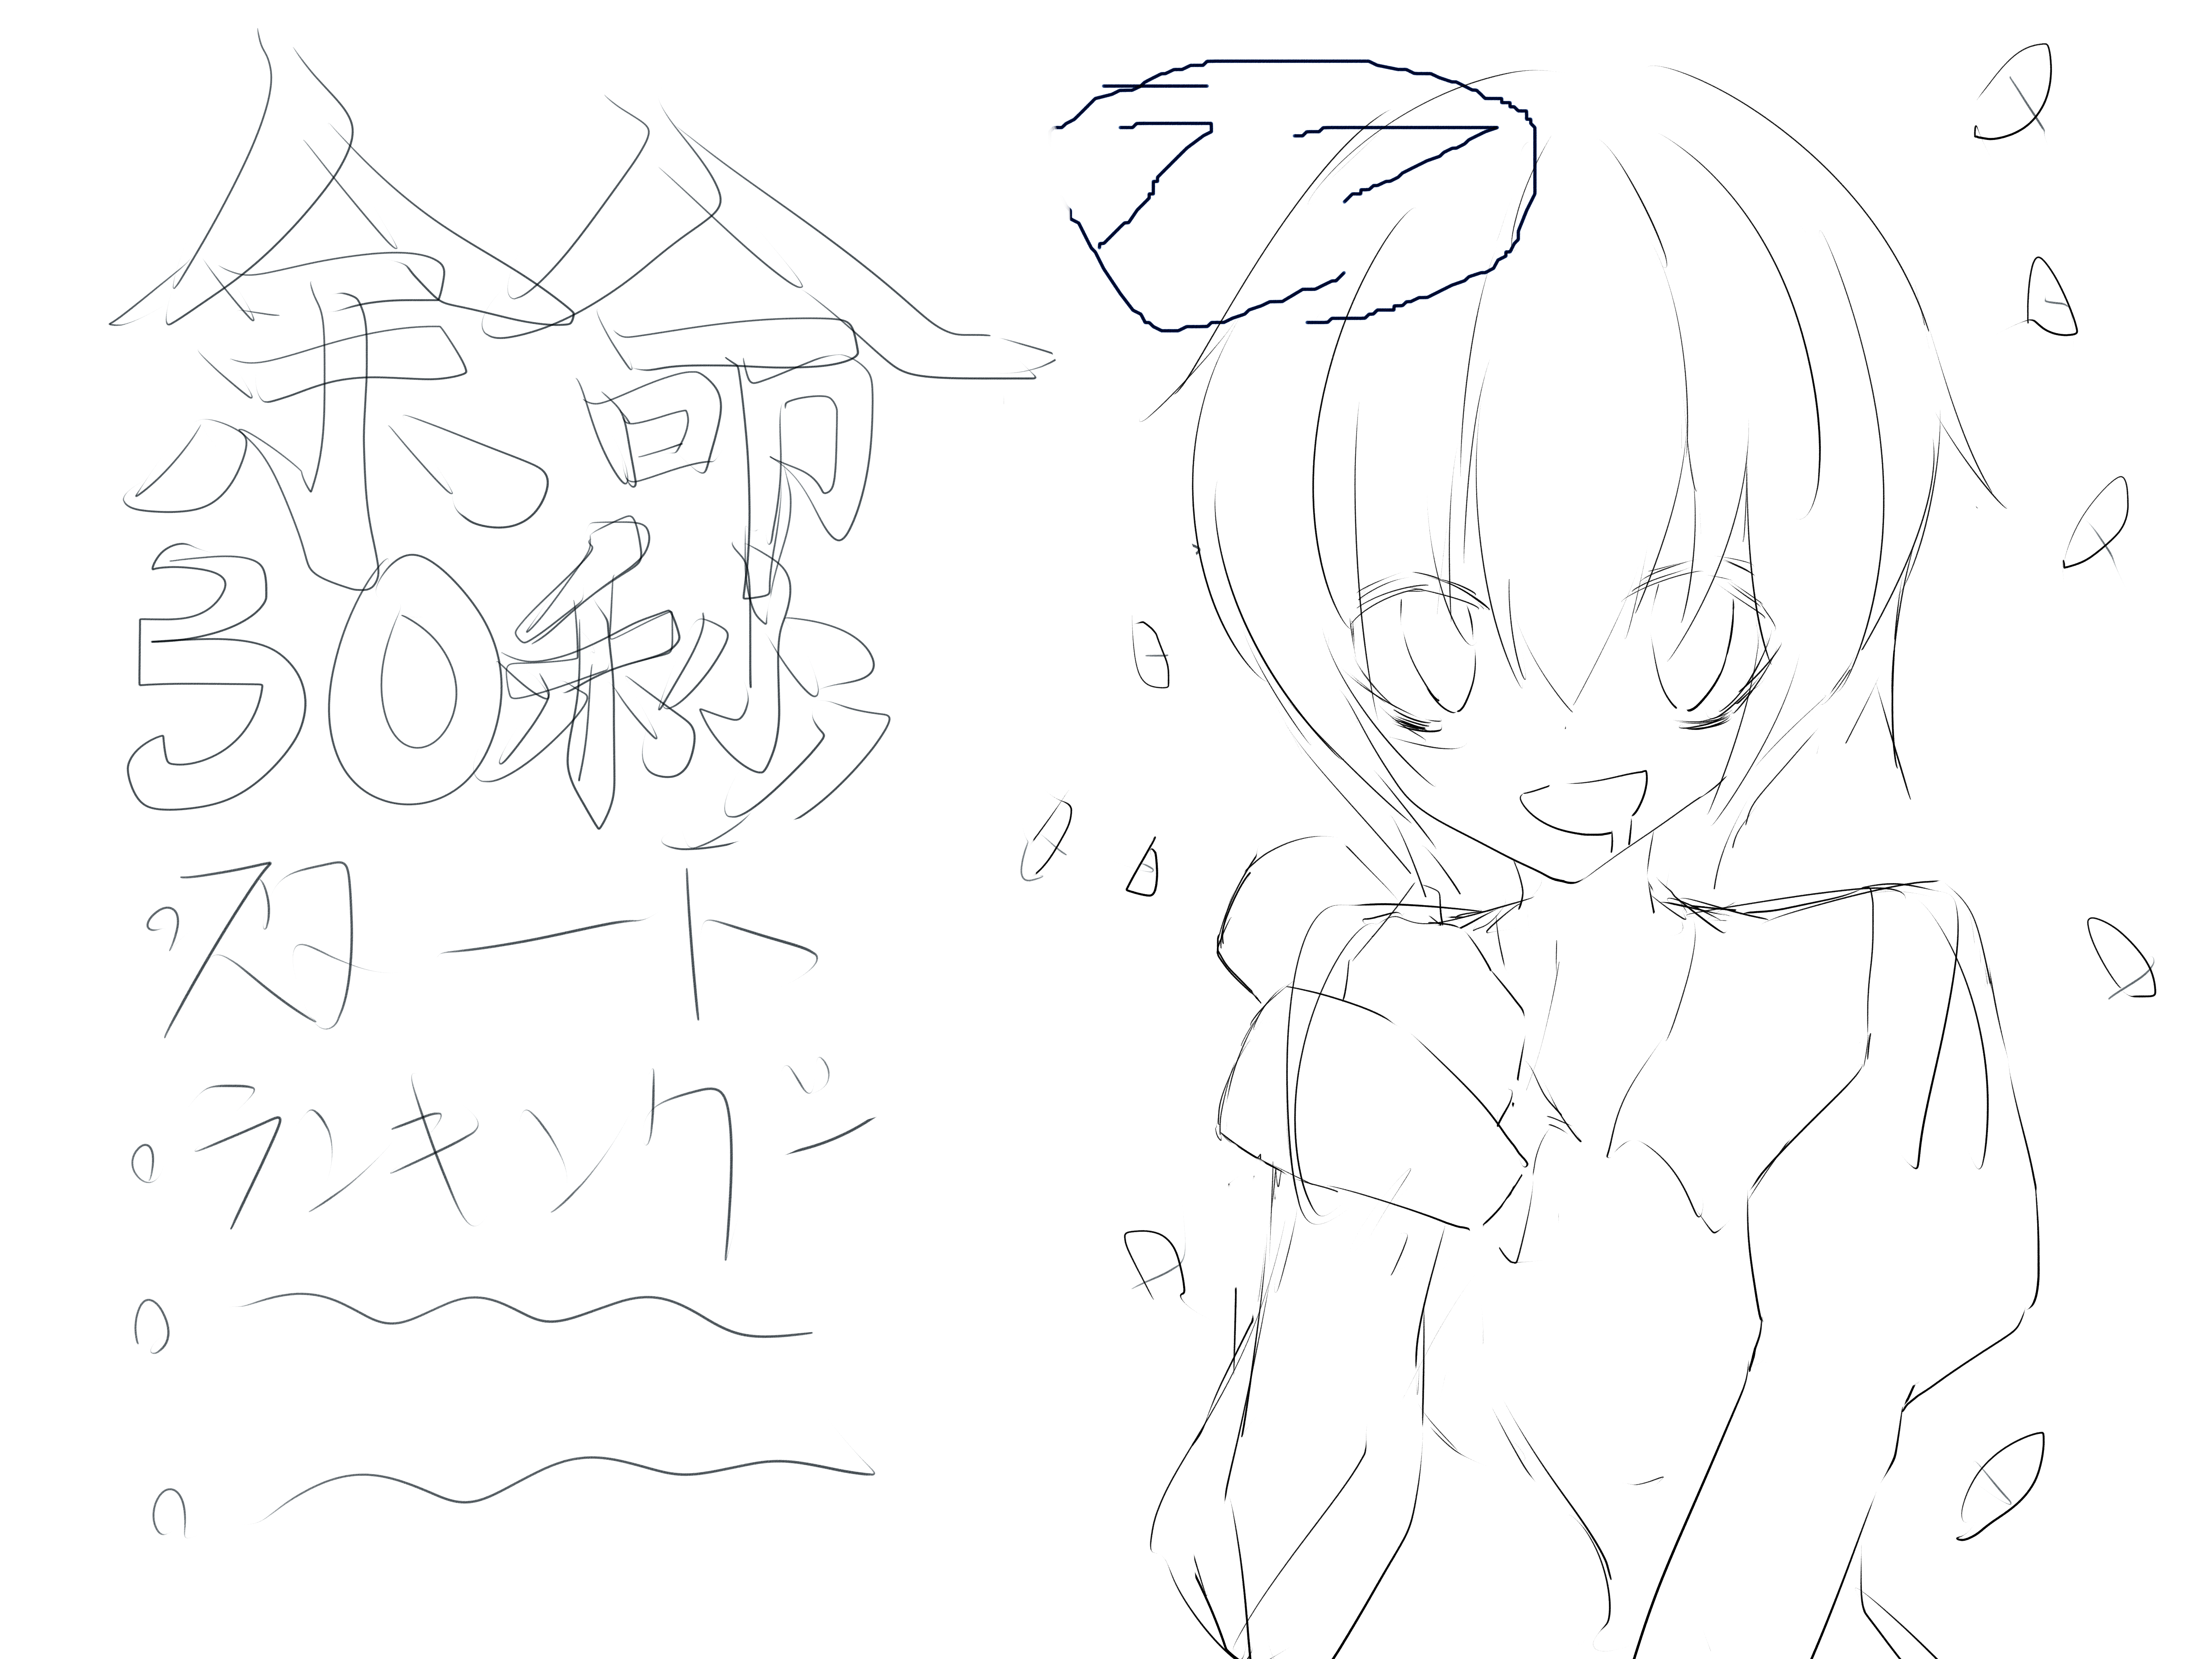 余命
30秒
スタート
ランキング